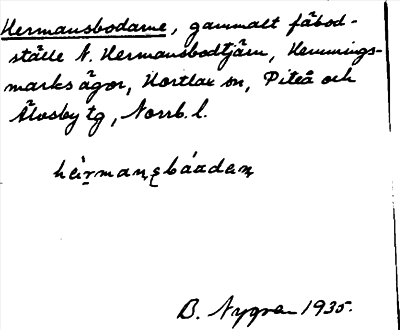 Hermansbodarne, gammalt fäbod-
ställe N. Hermansbodtjärn, Hemmings-
marks ägor, Hortlax sn, Piteå och
Älvsby tg, Norrb. l.
B. Nygren 1935.